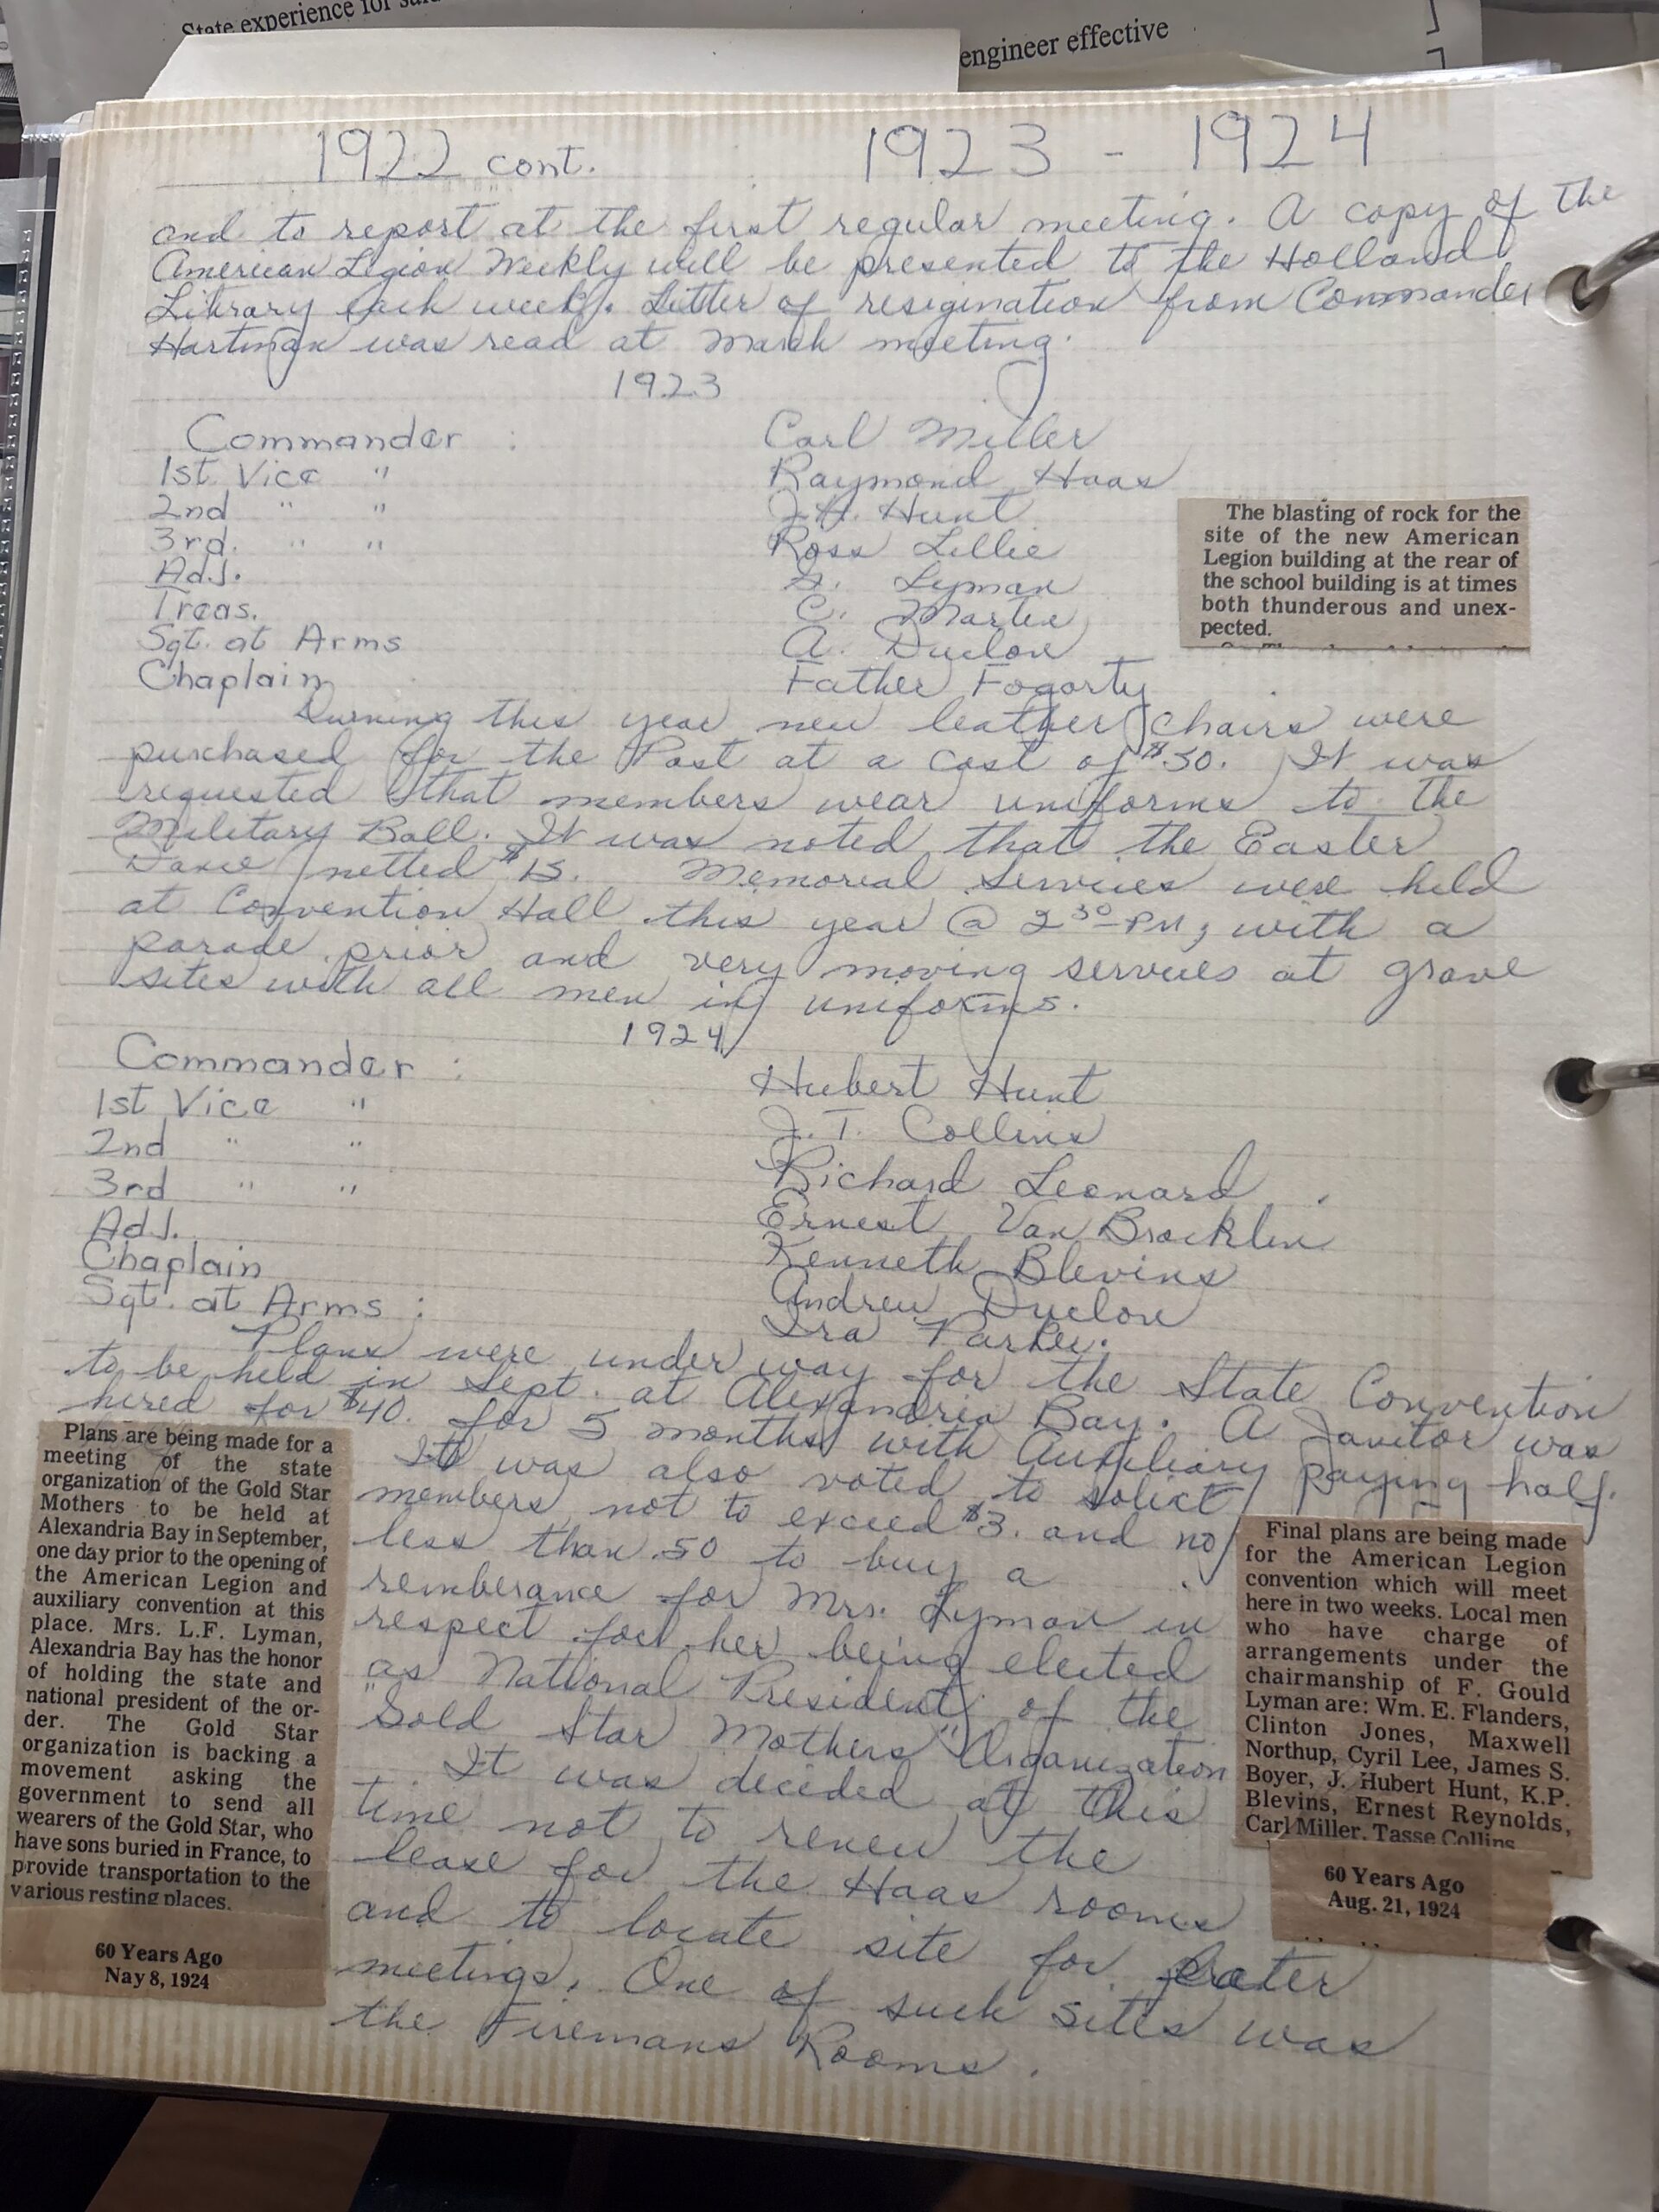 State experience for
engineer effective
1922 cont. 1923 - 1924
and to report at the first regular meeting. A copy of the
American Legion Weekly will be presented to the Holland
Library each week. Letter of resigination from Commander
Hartman was read at March meeting.
1923
Commander : Carl Miller
1st Vice " Raymond Haas
2nd " " J.H. Hunt
3rd. " " Ross Lillie
Adj. G. Lyman
Treas. C. Martin
Sgt. at Arms A. Duclon
Chaplain Father Fogarty
During this year new leather chairs were
purchased for the Post at a cost of $30. It was
requested that members wear uniforms to the
Military Ball. It was noted that the Easter
Dance netted $15. Memorial Services were held
at Convention Hall this year @ 2 30 PM, with a
parade prior and very moving services at grave
sites with all men in uniforms.
The blasting of rock for the
site of the new American
Legion building at the rear of
the school building is at times
both thunderous and unex-
pected.
1924
Commander : Hubert Hunt
1st Vice " J.T. Collins
2nd " " Richard Leonard
3rd " " Ernest Van Brocklin
Adj. Kenneth Blevins
Chaplain Andrew Duclon
Sgt. at Arms : Ira Parker.
Plans were under way for the State Convention
to be held in Sept. at Alexandria Bay. A Janitor was
hired for $40. for 5 months with Auxiliary paying half.
It was also voted to solict
members, not to exceed $3. and no
less than .50 to buy a
remberance for Mrs. Lyman in
respect for her being elected
as National President of the
"Gold Star Mothers" Organization
It was decided at this
time not to renew the
lease for the Haas rooms
and to locate site for later
meetings. One of such sites was
the Firemans Rooms.
Plans are being made for a
meeting of the state
organization of the Gold Star
Mothers to be held at
Alexandria Bay in September,
one day prior to the opening of
the American Legion and
auxiliary convention at this
place. Mrs. L.F. Lyman,
Alexandria Bay has the honor
of holding the state and
national president of the or-
der. The Gold Star
organization is backing a
movement asking the
government to send all
wearers of the Gold Star, who
have sons buried in France, to
provide transportation to the
various resting places.
60 Years Ago
Nay 8, 1924
Final plans are being made
for the American Legion
convention which will meet
here in two weeks. Local men
who have charge of
arrangements under the
chairmanship of F. Gould
Lyman are: Wm. E. Flanders,
Clinton Jones, Maxwell
Northup, Cyril Lee, James S.
Boyer, J. Hubert Hunt, K.P.
Blevins, Ernest Reynolds,
Carl Miller, Tasse Collins
60 Years Ago
Aug. 21, 1924